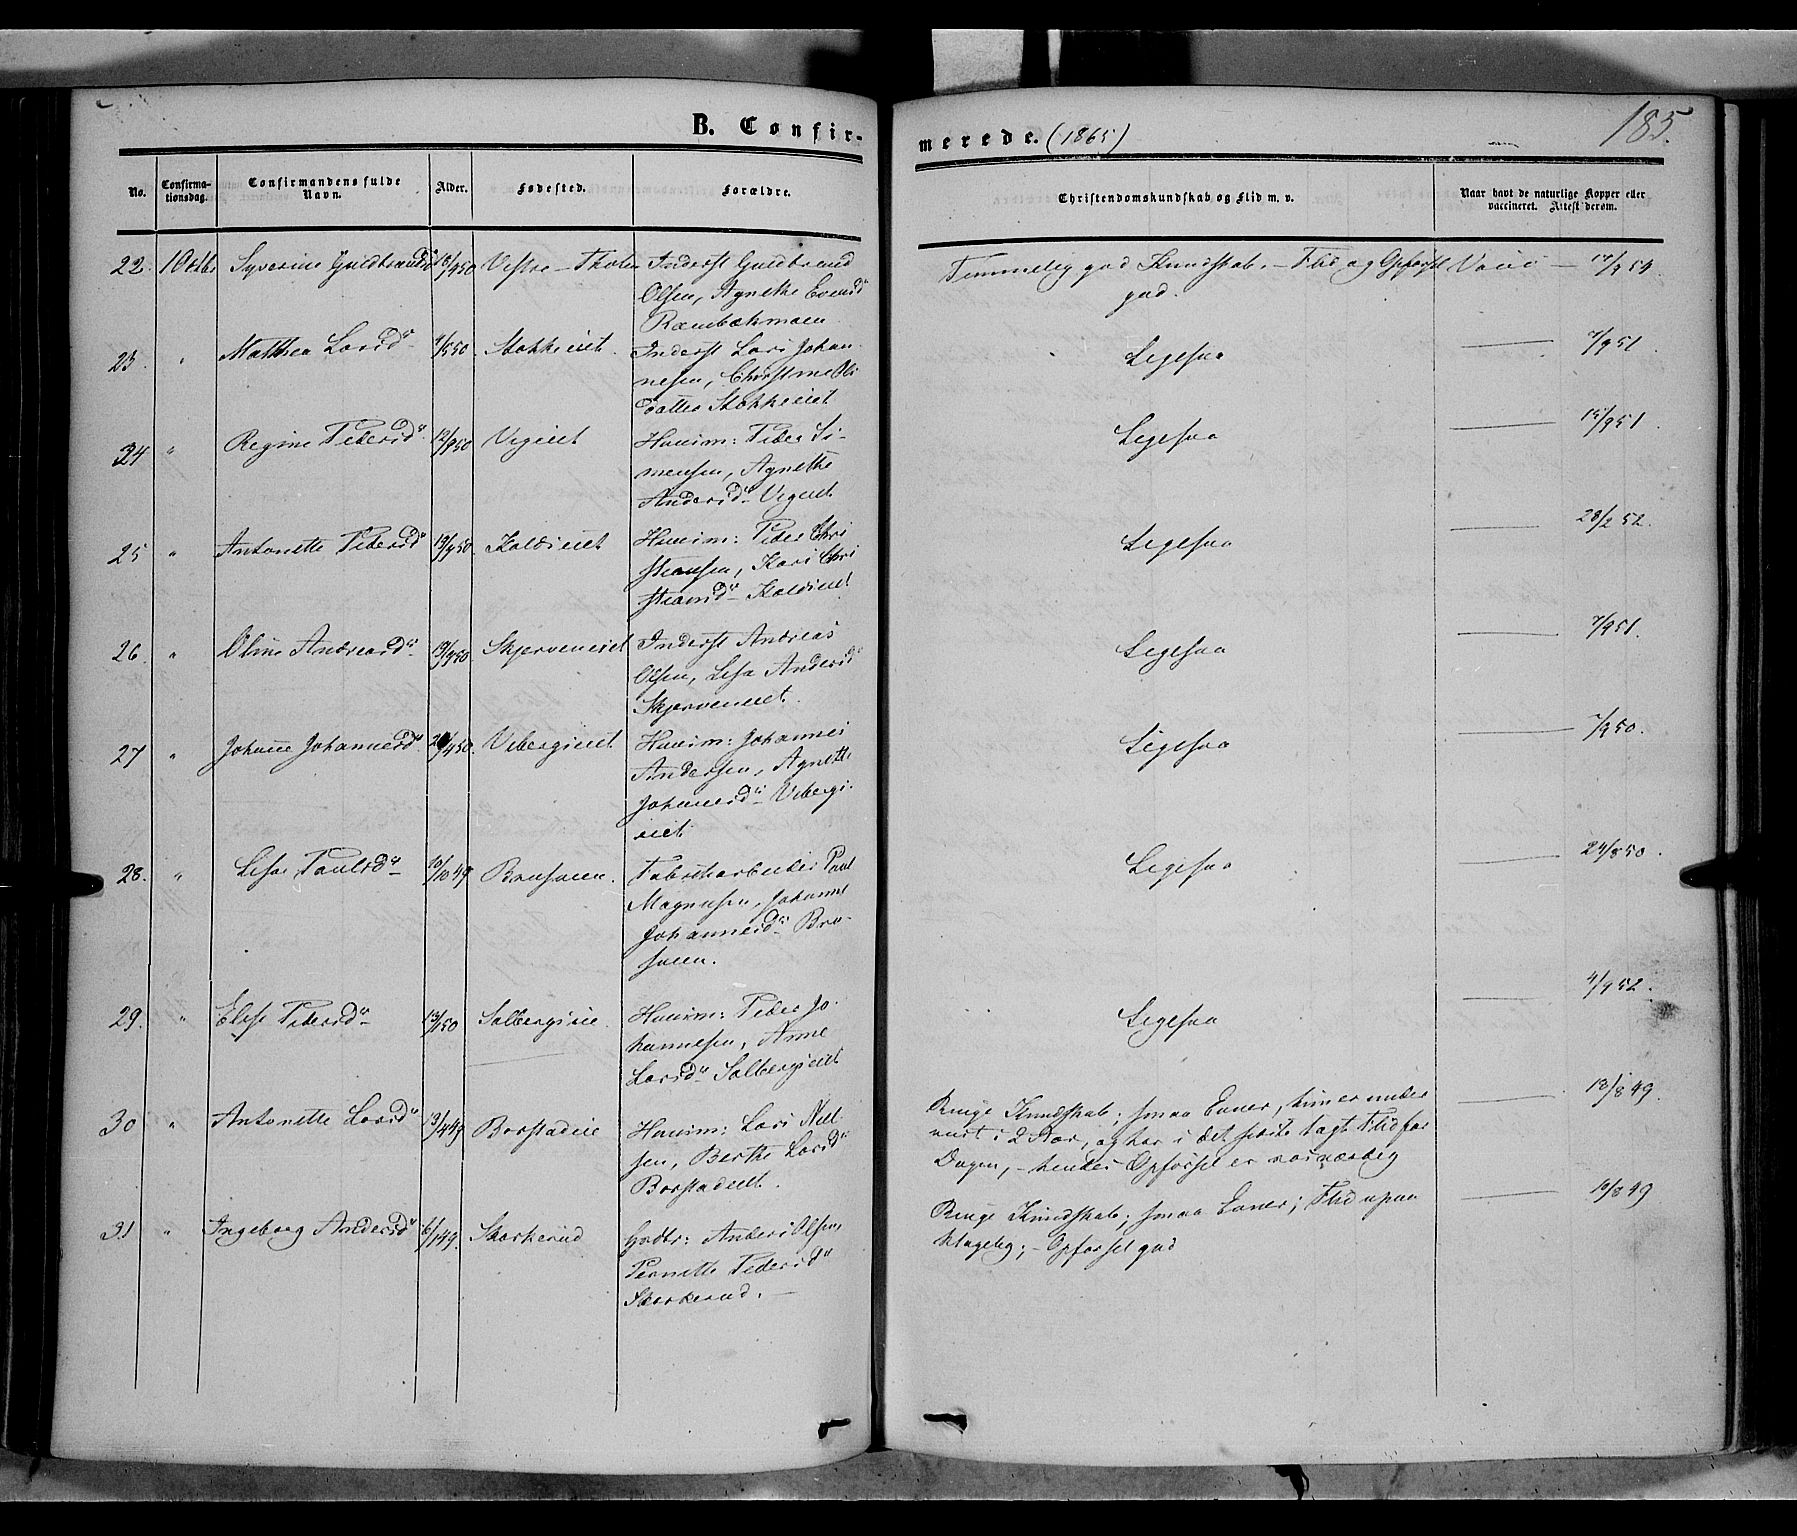 B. Confir-
merede. (1865)
185.
No.
Confirma-
tionsdag.
Confirmandens fulde
Navn.
Alder.
Fødested.
Forældre.
Christendomskundskab og Flid m. v.
Naar havt de naturlige Kopper eller
vaccineret. Attest derom.
22. 1 Octbr. Syverine Guldbrandsd 850 Vestre-Thoten Inderst Guldbrand
Olsen, Agnethe Evensd
Rambækmoen
Temmelig god Kundskab. - Flid og Opførsel
god.
Vacc — 54.
23. " Mathea Larsd 50 Stokkeiet. Inderst Lars Johan-
nesen, Christine Ols
datter Stokkeiet
Ligesaa — 7/9 51.
24 " Regine Pedersd 12/8 50 Vegeiet Huusm: Peder Si-
mensen, Agnethe
Andersd Vegeiet
Ligesaa — 15/9 51.
25 " Antonette Pedersd 19/9 50 Koldeiet Huusm: Peder Chri
stiansen, Kari Chri
stiansd Koldeiet
Ligesaa — 28/2 52.
26 " Oline Andreasd 19/9 50 Skjerveneiet Inderst Andreas
Olsen, Lisa Andersd
Skjerveneiet.
Ligesaa — 7/9 51.
27 " Johanne Johannesd 50. Vibergseiet Huusm: Johannes
Andersen, Agnethe
Johannesd Vibergs-
eiet
Ligesaa — 7/9 50.
28. " Lisa, Paulsd 10/10 49 Bruspoen. Fabrikarbeider Paul
Magnusen, Johanne
Johannesd Bru-
Ligesaa — 24/8 50.
29. " Else Pedersd 13/1 50 Solbergseie. Huusm: Peder Jo-
hannesen, Anne
Larsd Solbergseiet
Ligesaa — 4/9 52.
30 " Antonette Larsd 13/4 49 Borstadeie Huusm: Lars Niel
sen, Berthe Larsd
Borstadeiet.
Ringe Kundskab; smaa Evner, hun er under
viist i 2 Aar, og har i det sidste lagt Flid for
Dagen, - hendes Opførsel er rosværdig
— 13/8 49.
31 " Ingeborg Andersd 6/1 49. Skorkerud Grdbr: Anders Olsen
Pernette Pedersd
Skorkerud. —
Ringe Kundskab; smaa Evner; Flid upaa
klagelig; - Opførsel god
— 10/8 49